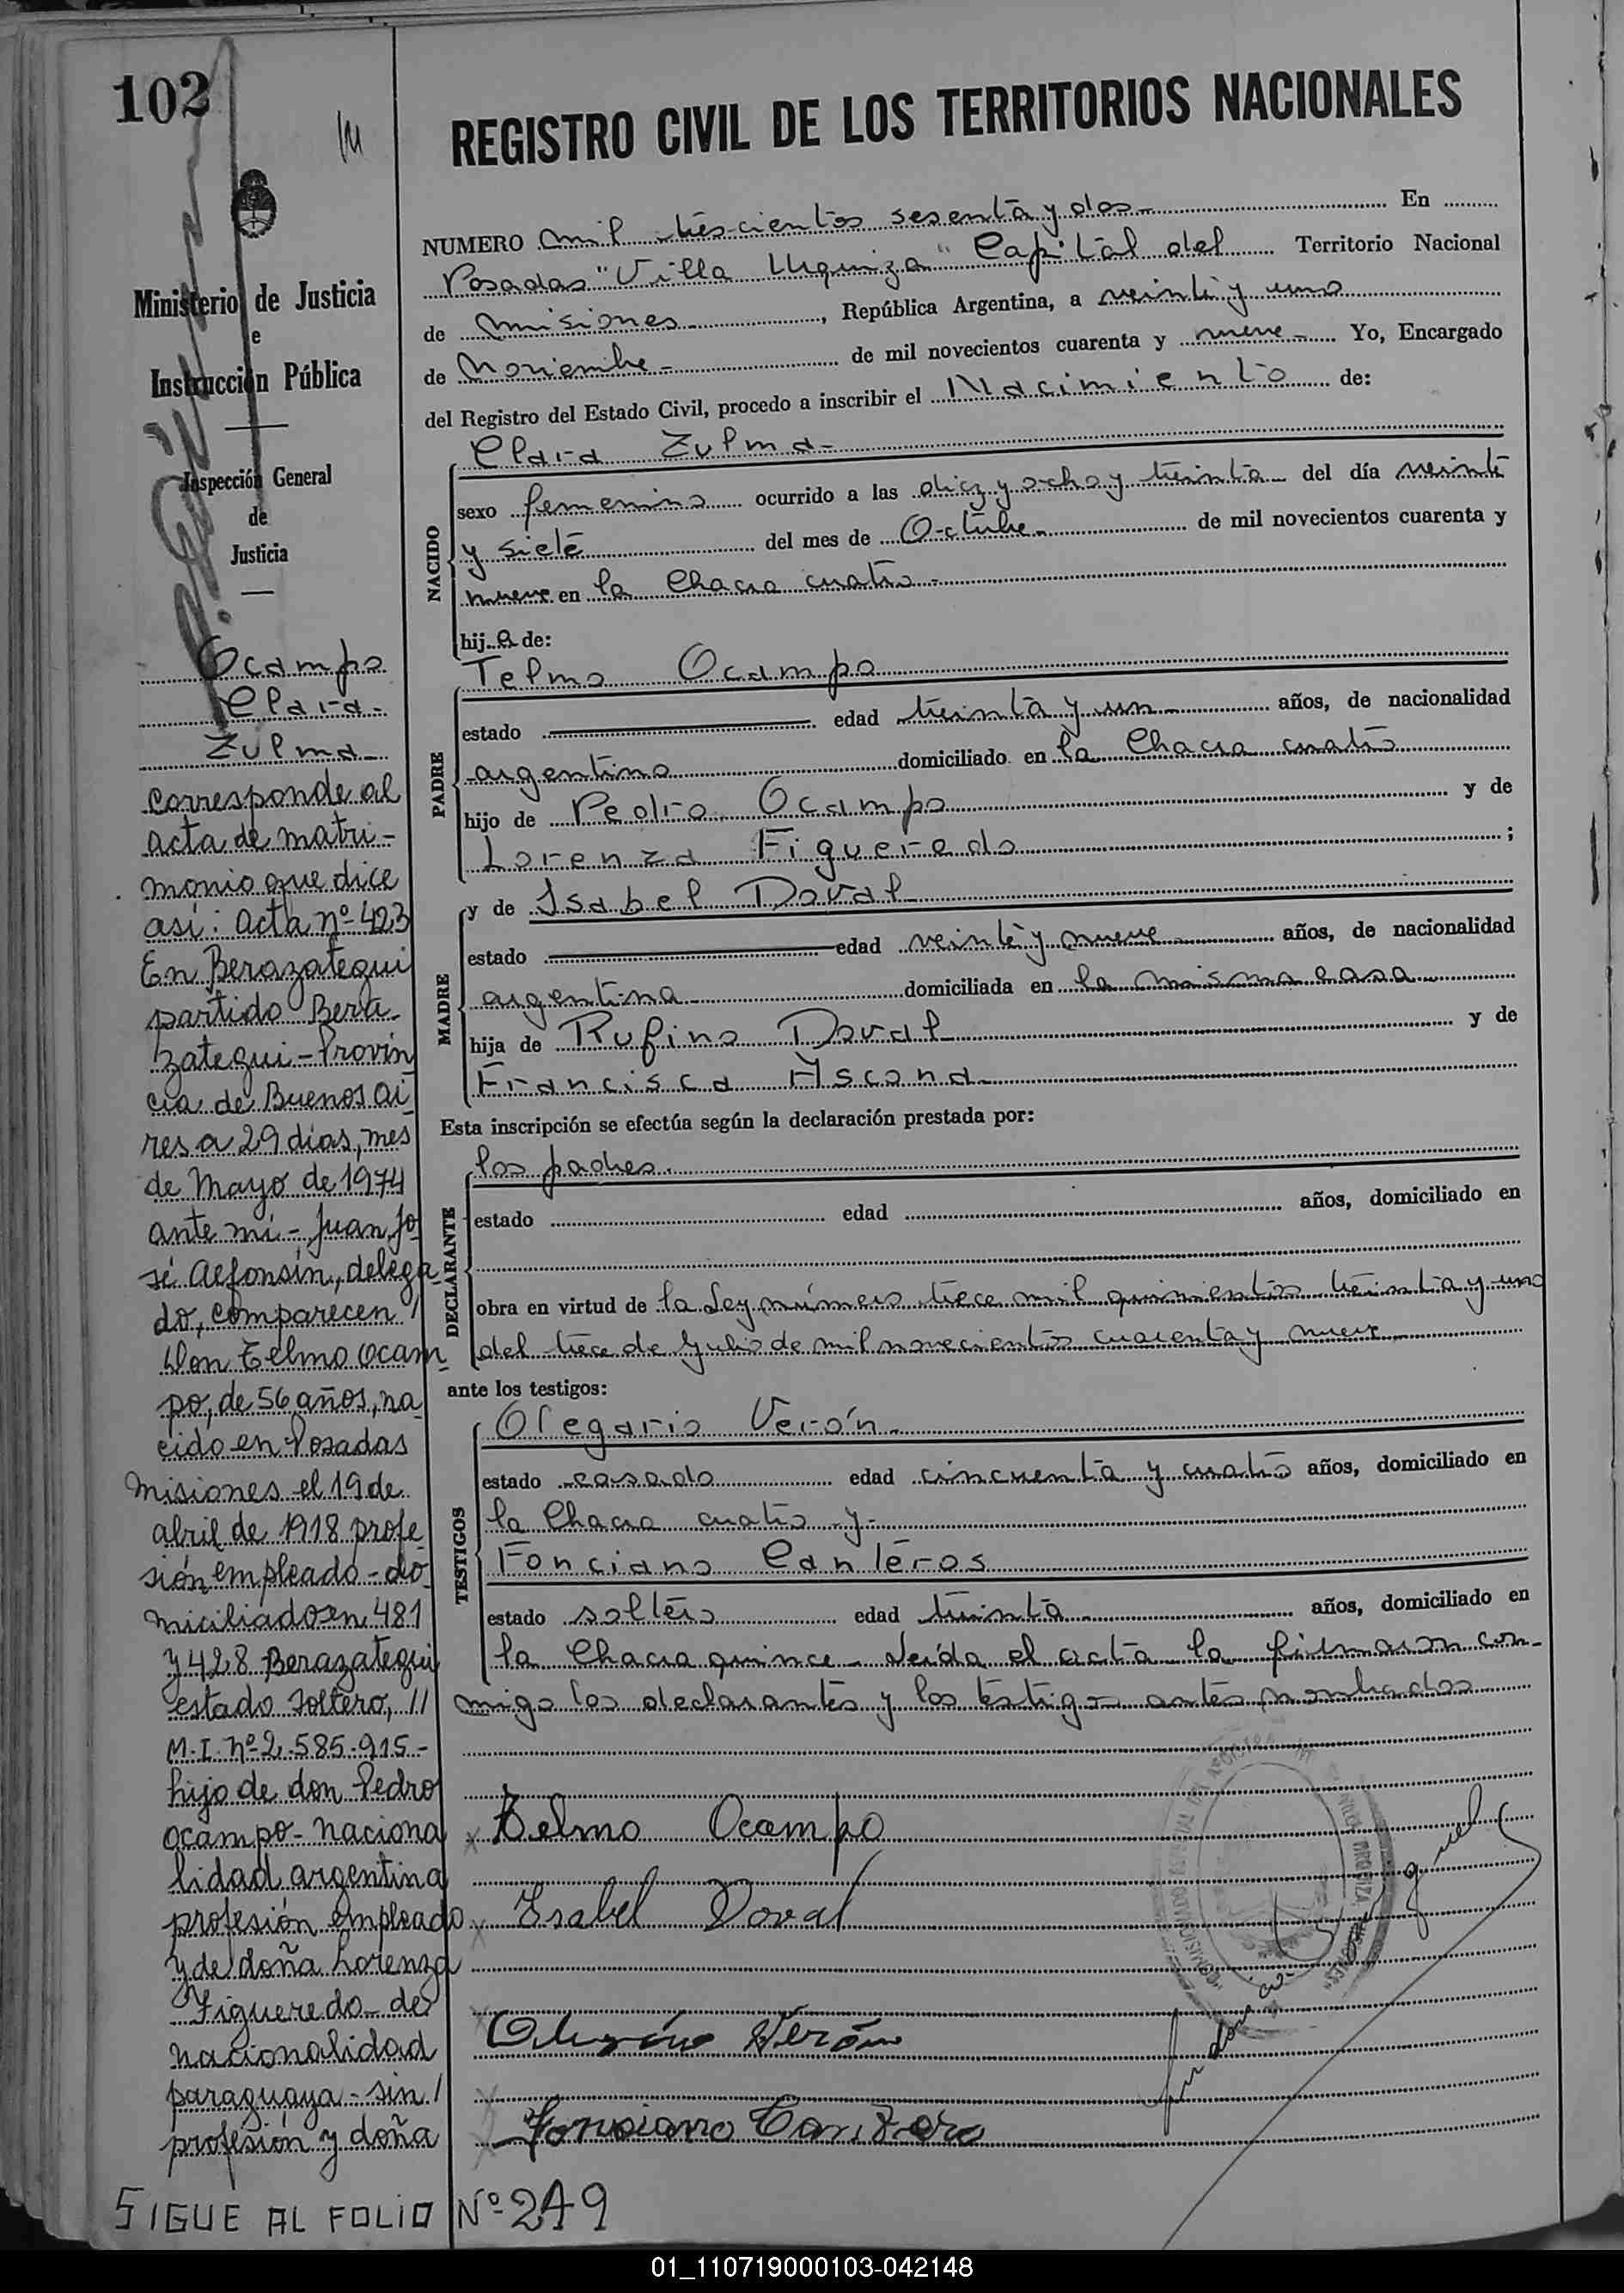 102
REGISTRO CIVIL DE LOS TERRITORIOS NACIONALES
Ministerio de Justicia
e
Instrucción Pública
Inspección General
de
Justicia
Ocampo
Clara
Zulma
Corresponde al
acta de matri-
monio que dice
así: acta nº 423
En Berazategui
partido Bera-
zategui - Provin
cia de Buenos Ai
res a 29 días, mes
de Mayo de 1974
ante mi - Juan Jo
sé Alfonsín, delega
do, comparecen /
Don Telmo Ocam
po, de 56 años, na
cido en Posadas
Misiones el 19 de
abril de 1918 profe
sión empleado - do
miciliado en 481
y 428 Berazategui
estado soltero, //
M.I. nº 2.585.915-
hijo de don Pedro
Ocampo - naciona
lidad argentina
profesión empleado
y de doña Lorenza
Figueredo - de
nacionalidad
paraguaya - sin /
profesión y doña
SIGUE AL FOLIO Nº 249
NUMERO mil trescientos sesenta y dos En
Posadas "Villa Urquiza" Capital del Territorio Nacional
de Misiones, República Argentina, a veinte y uno
de Noviembre de mil novecientos cuarenta y nueve Yo, Encargado
del Registro del Estado Civil, procedo a inscribir el Nacimiento de:
NACIDO
Clara Zulma
sexo femenino ocurrido a las diez y ocho y treinta del día veinte
y siete del mes de Octubre de mil novecientos cuarenta y
nueve en la Chacra cuatro
hija de:
PADRE
Telmo Ocampo
estado edad treinta y un años, de nacionalidad
argentino domiciliado en la Chacra cuatro
hijo de Pedro Ocampo y de
Lorenza Figueredo ;
MADRE
y de Isabel Doval
estado edad veinte y nueve años, de nacionalidad
argentina domiciliada en la misma casa
hija de Rufino Doval y de
Francisca Ascona
Esta inscripción se efectúa según la declaración prestada por:
DECLARANTE
los padres
estado edad años, domiciliado en
obra en virtud de la Ley número trece mil quinientos treinta y uno
del trece de Julio de mil novecientos cuarenta y nueve
ante los testigos:
TESTIGOS
Olegario Verón
estado casado edad cincuenta y cuatro años, domiciliado en
la Chacra cuatro y
Fonciano Canteros
estado soltero edad treinta años, domiciliado en
la Chacra quince - Leída el acta la firmaron con-
migo los declarantes y los testigos antes nombrados
x Telmo Ocampo
x Isabel Doval
Verón
01_110719000103-042148